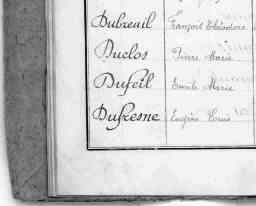 Dubreuil François Théodore
Duclos Pierre Marie
Dufeil Emile Marie
Dufresne Eugène Louis